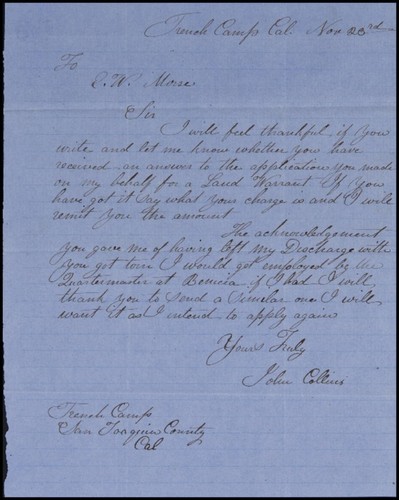 French Camp Cal. Nov 23rd
To
E. W. Morse
Sir
I will feel thankful if you
write and let me know whether you have
received an answer to the application you made
on my behalf for a Land Warrant If you
have got it Say what your charge is and I will
remit you the amount
The acknowledgement
you gave me of having left my Discharge with
you got torn I would get employed by the
Quartermaster at Benicia if I had I will
thank you to send a Similar one I will
want it as I intend to apply again
Yours Truly
John Collins
French Camp
San Joaquin County
Cal